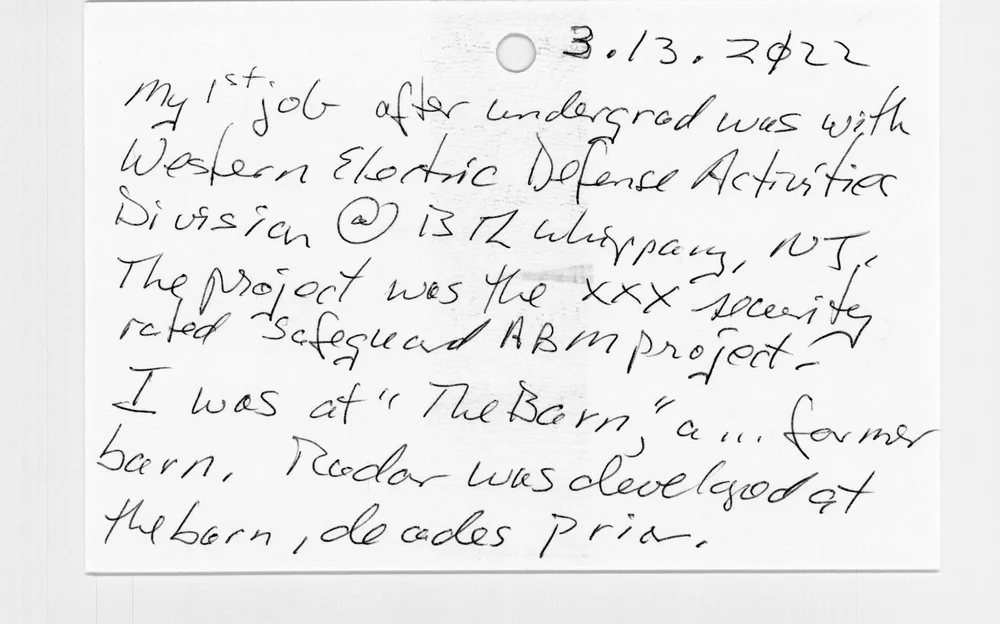 3.13.2022
My 1st job after undergrad was with
Western Electric Defense Activities
Division @ BTL Whippany, NJ.
The project was the XXX security
rated Safeguard ABM project.
I was at "The Barn," a... former
barn. Radar was developed at
the barn, decades prior.